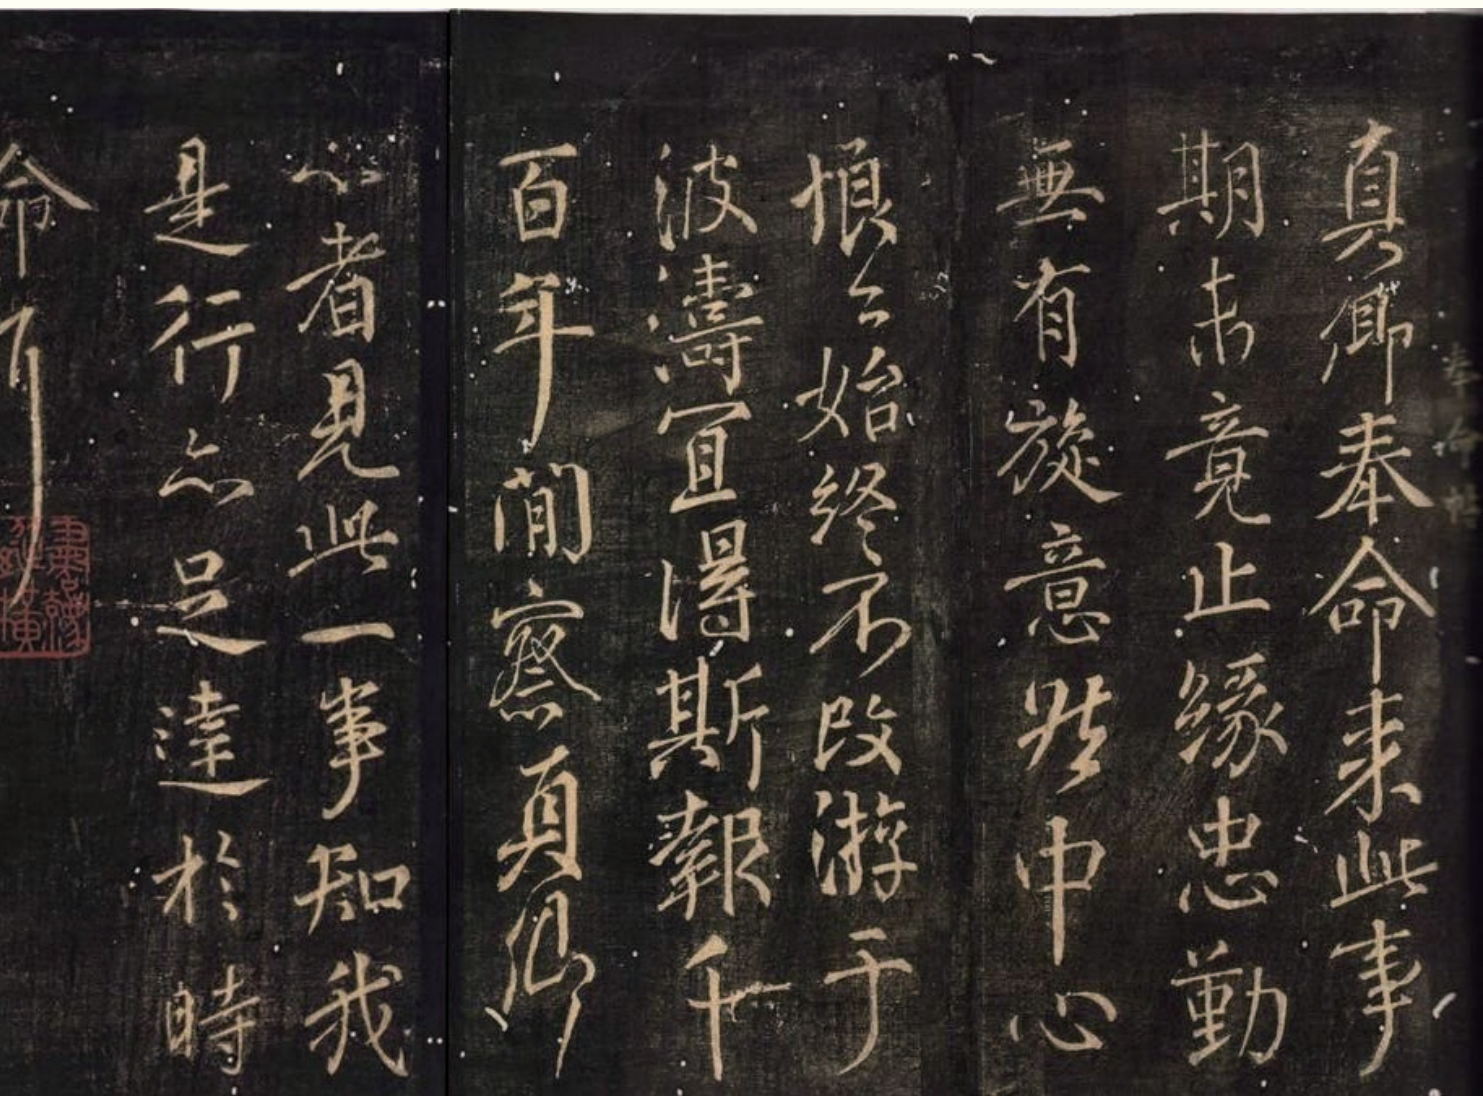 奉命帖
真卿奉命来此事
期未竟止緣忠勤
無有旋意然中心
恨々始終不改游于
波濤宜得斯報千
百年間察真卿
心者見此一事知我
是行亦足達於時
命耳